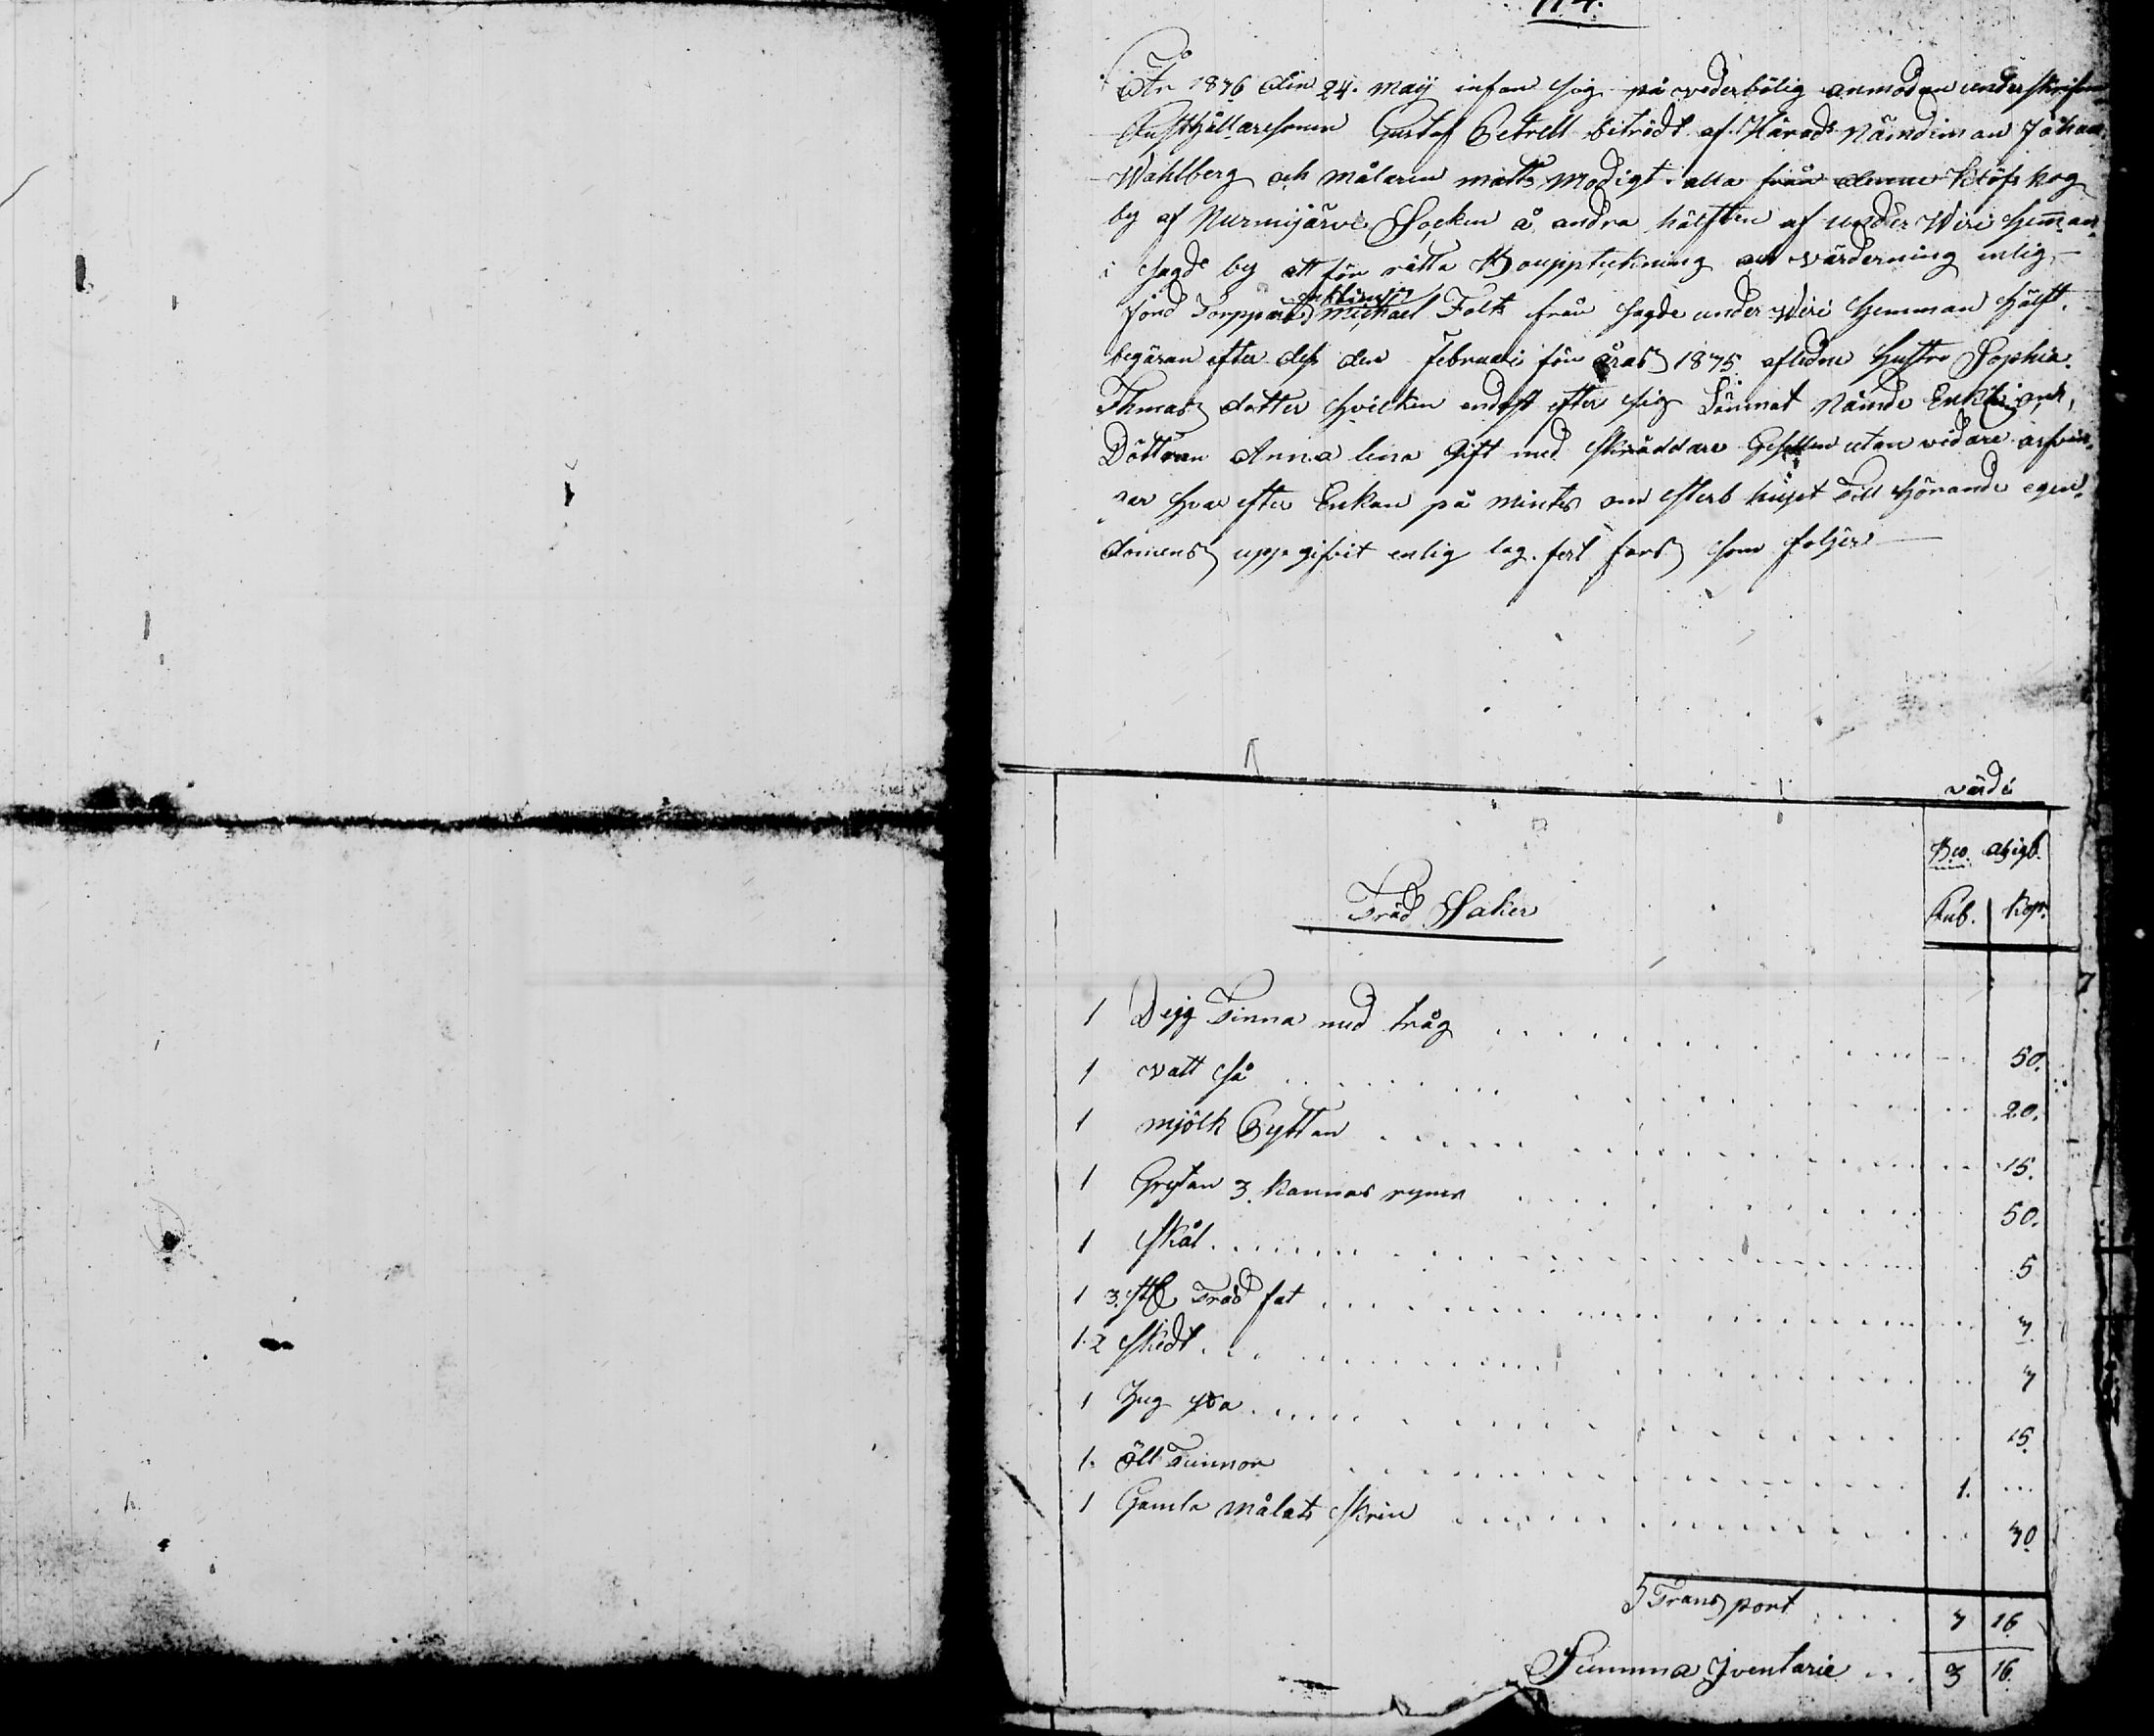 114.
År 1876 den 24. Maÿ infan sig på vederbölig anmodan underskrifen
Rusthållaresonen Gustaf Petrell biträdt af Härads Nämdeman Johan
Wahlberg och målaren matts Modigt. alla från denne Klöfskog
by af Nurmijärvi Socken å andra hälften af under Wiri Hemman
i sagde by att för rätta Bouppteckning och värderning enlig
enklingen
fönd Torpparen Michael Falk från sagde under Wiri Hemman hälft.
begäran efter dess den Februari för åras 1875 aflidne Hustro Sophia
Thmas dotter hvilken endast efter sig Lämnat Nämde Enkling och,
Döttran Anna lena Gift med Skräddare Gesellen utan vidare arfvin-
gar hvar efter Enkan på mintes om sterb huset Till hörande egen-
domens uppgifvit enlig lag. fert fars som foljer
värde
Bco. Rub. Kop.
Träd Saker
1 Deg Tinna med tråg 50.
1 vatt så 20.
1 mjölk Byttan 15.
1 Grytan 3. kannas rymn 50.
1 Skål 5
1 3. st Träd fat 7
1 2 Skedt 7
1 Hug yxa 15.
1. öll Tunnor 1. ...
1 Gamla målat Skrin 30
Transport 3 16
Summa Jventarie 3 16.